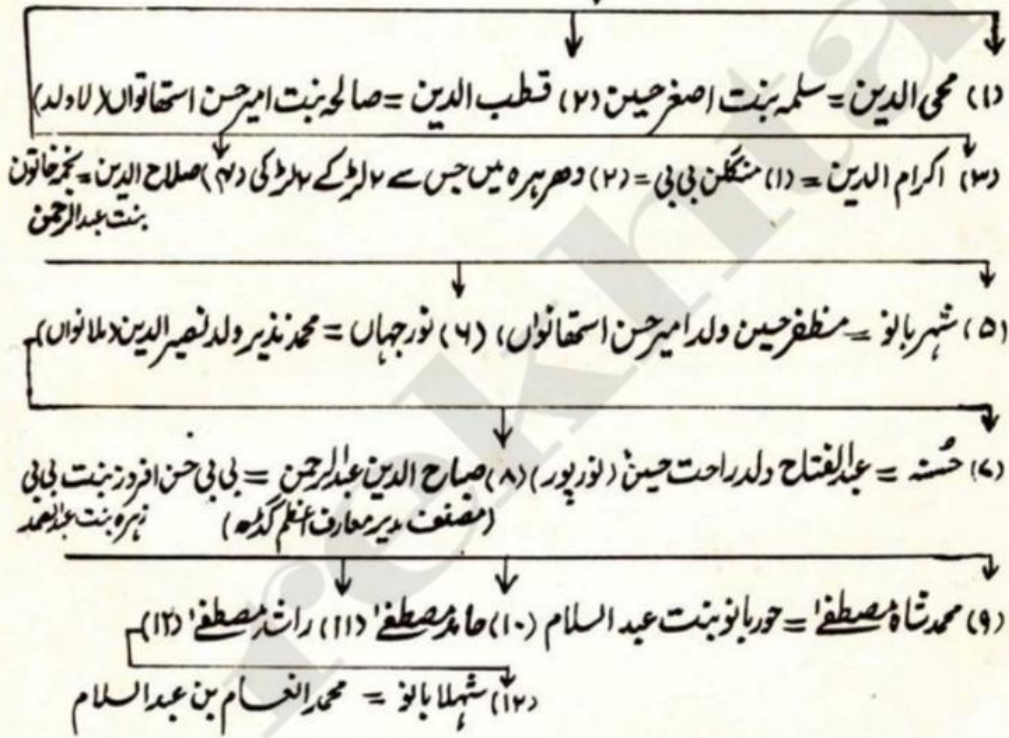 (۱) محی الدین = سلمہ بنت اصغر حسین (۲) قطب الدین = صالحہ بنت امیر حسن استھانواں (لاولد)
(۳) اکرام الدین = (۱) منگلن بی بی = (۲) دھرہرہ میں جس سے ۲ لڑکے ۲ لڑکی (۴) صلاح الدین = نجمہ خاتون
بنت عبدالرحمن
(۵) شہر بانو = مظفر حسین ولد امیر حسن استھانواں) (۶) نور جہاں = محمد نذیر ولد نصیر الدین (ملانواں)
(۷) حسنہ = عبدالفتاح ولد راحت حسین (نور پور) (۸) صباح الدین عبدالرحمن = بی بی حسن افروز بنت بی بی
(مصنف مدیر معارف اعظم گڈھ) زہرہ بنت عبدالصمد
(۹) محمد شاہ مصطفےٰ = حور بانو بنت عبد السلام (۱۰) حامد مصطفےٰ (۱۱) راشد مصطفےٰ (۱۲)
(۱۲) شہلا بانو = محمد انعام بن عبدالسلام
rekhta